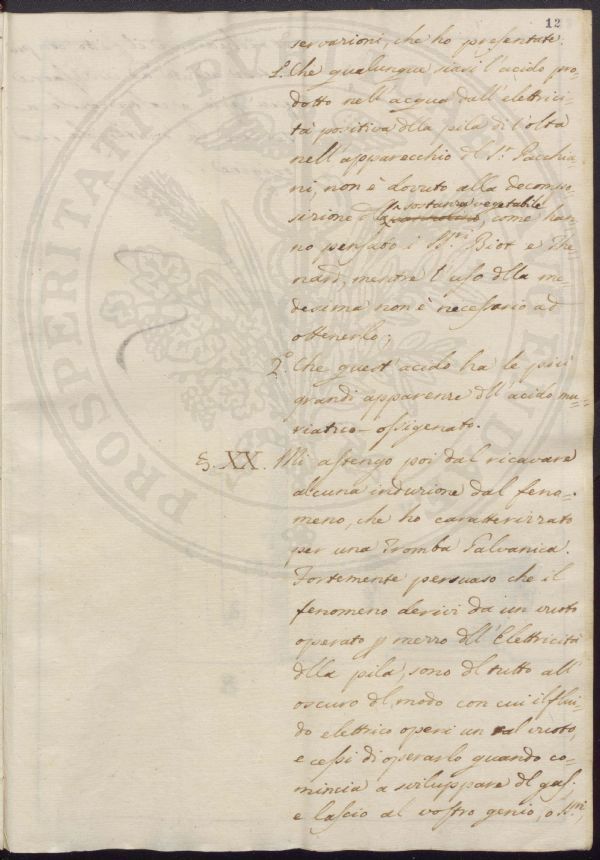 12
servazioni, che ho presentate.
1. Che qualunque siasi l'acido pro-
dotto nell'acqua dall'elettrici-
tà positiva dlla pila di Volta
nell'apparecchio del Sr. Pacchia-
ni, non è dovuto alla decompo-
la sostanza vegetabile
sizione d come han-
no pensato i SSri. Biot e The-
nard, mentre l'uso dlla me-
desima non è necessario ad
ottenerlo;
2.° Che quest'acido ha le più
grandi apparenze dll'acido mu-
riatico-ossigenato.
§. XX. Mi astengo poi dal ricavare
alcuna induzione dal feno-
meno, che ho caratterizzato
per una Tromba Galvanica.
Fortemente persuaso che il
fenomeno derivi da un vuoto
operato p mezzo dll'Elettricità
dlla pila, sono del tutto all'
oscuro del modo con cui il flui-
do elettrico operi un tal vuoto,
e cessi di operarlo quando co-
mincia a sviluppare del gas;
e lascio al vostro genio, o Sri.,
PROSPERITATI PUBLICAE AUGENDAE